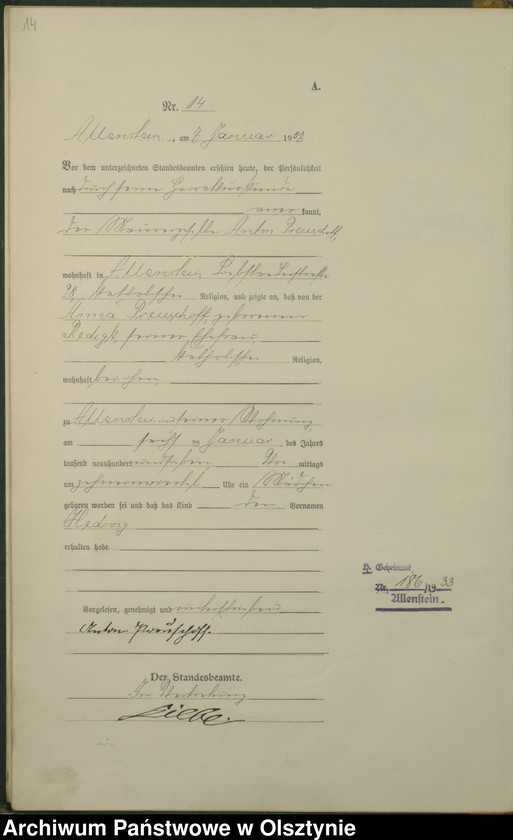 14
A.
Nr. 14
Allenstein, am 7 Januar 190
Vor dem unterzeichneten Standesbeamten erschien heute, der Persönlichkeit
nach durch seine Heiratsurkunde
aner kannt,
der Maurergeselle Anton Preuschoff,
wohnhaft in Allenstein Liebstädterstraße
28, katholischer Religion, und zeigte an, daß von der
Anna Preuschoff, geborenen
seiner Ehefrau,
katholischer Religion,
wohnhaft bei ihm,
zu Allenstein in seiner Wohnung,
am im Januar des Jahres
tausend neunhundert und sieben Vor mittags
um Uhr ein Mädchen
geboren worden sei und daß das Kind den Vornamen
Hedwig
erhalten habe.
Vorgelesen, genehmigt und unterschrieben
Anton Preuschoff.
Der Standesbeamte.
In Vertretung
St. Geheiratet
Nr. 186/1933
Allenstein.
Archiwum Państwowe w Olsztynie